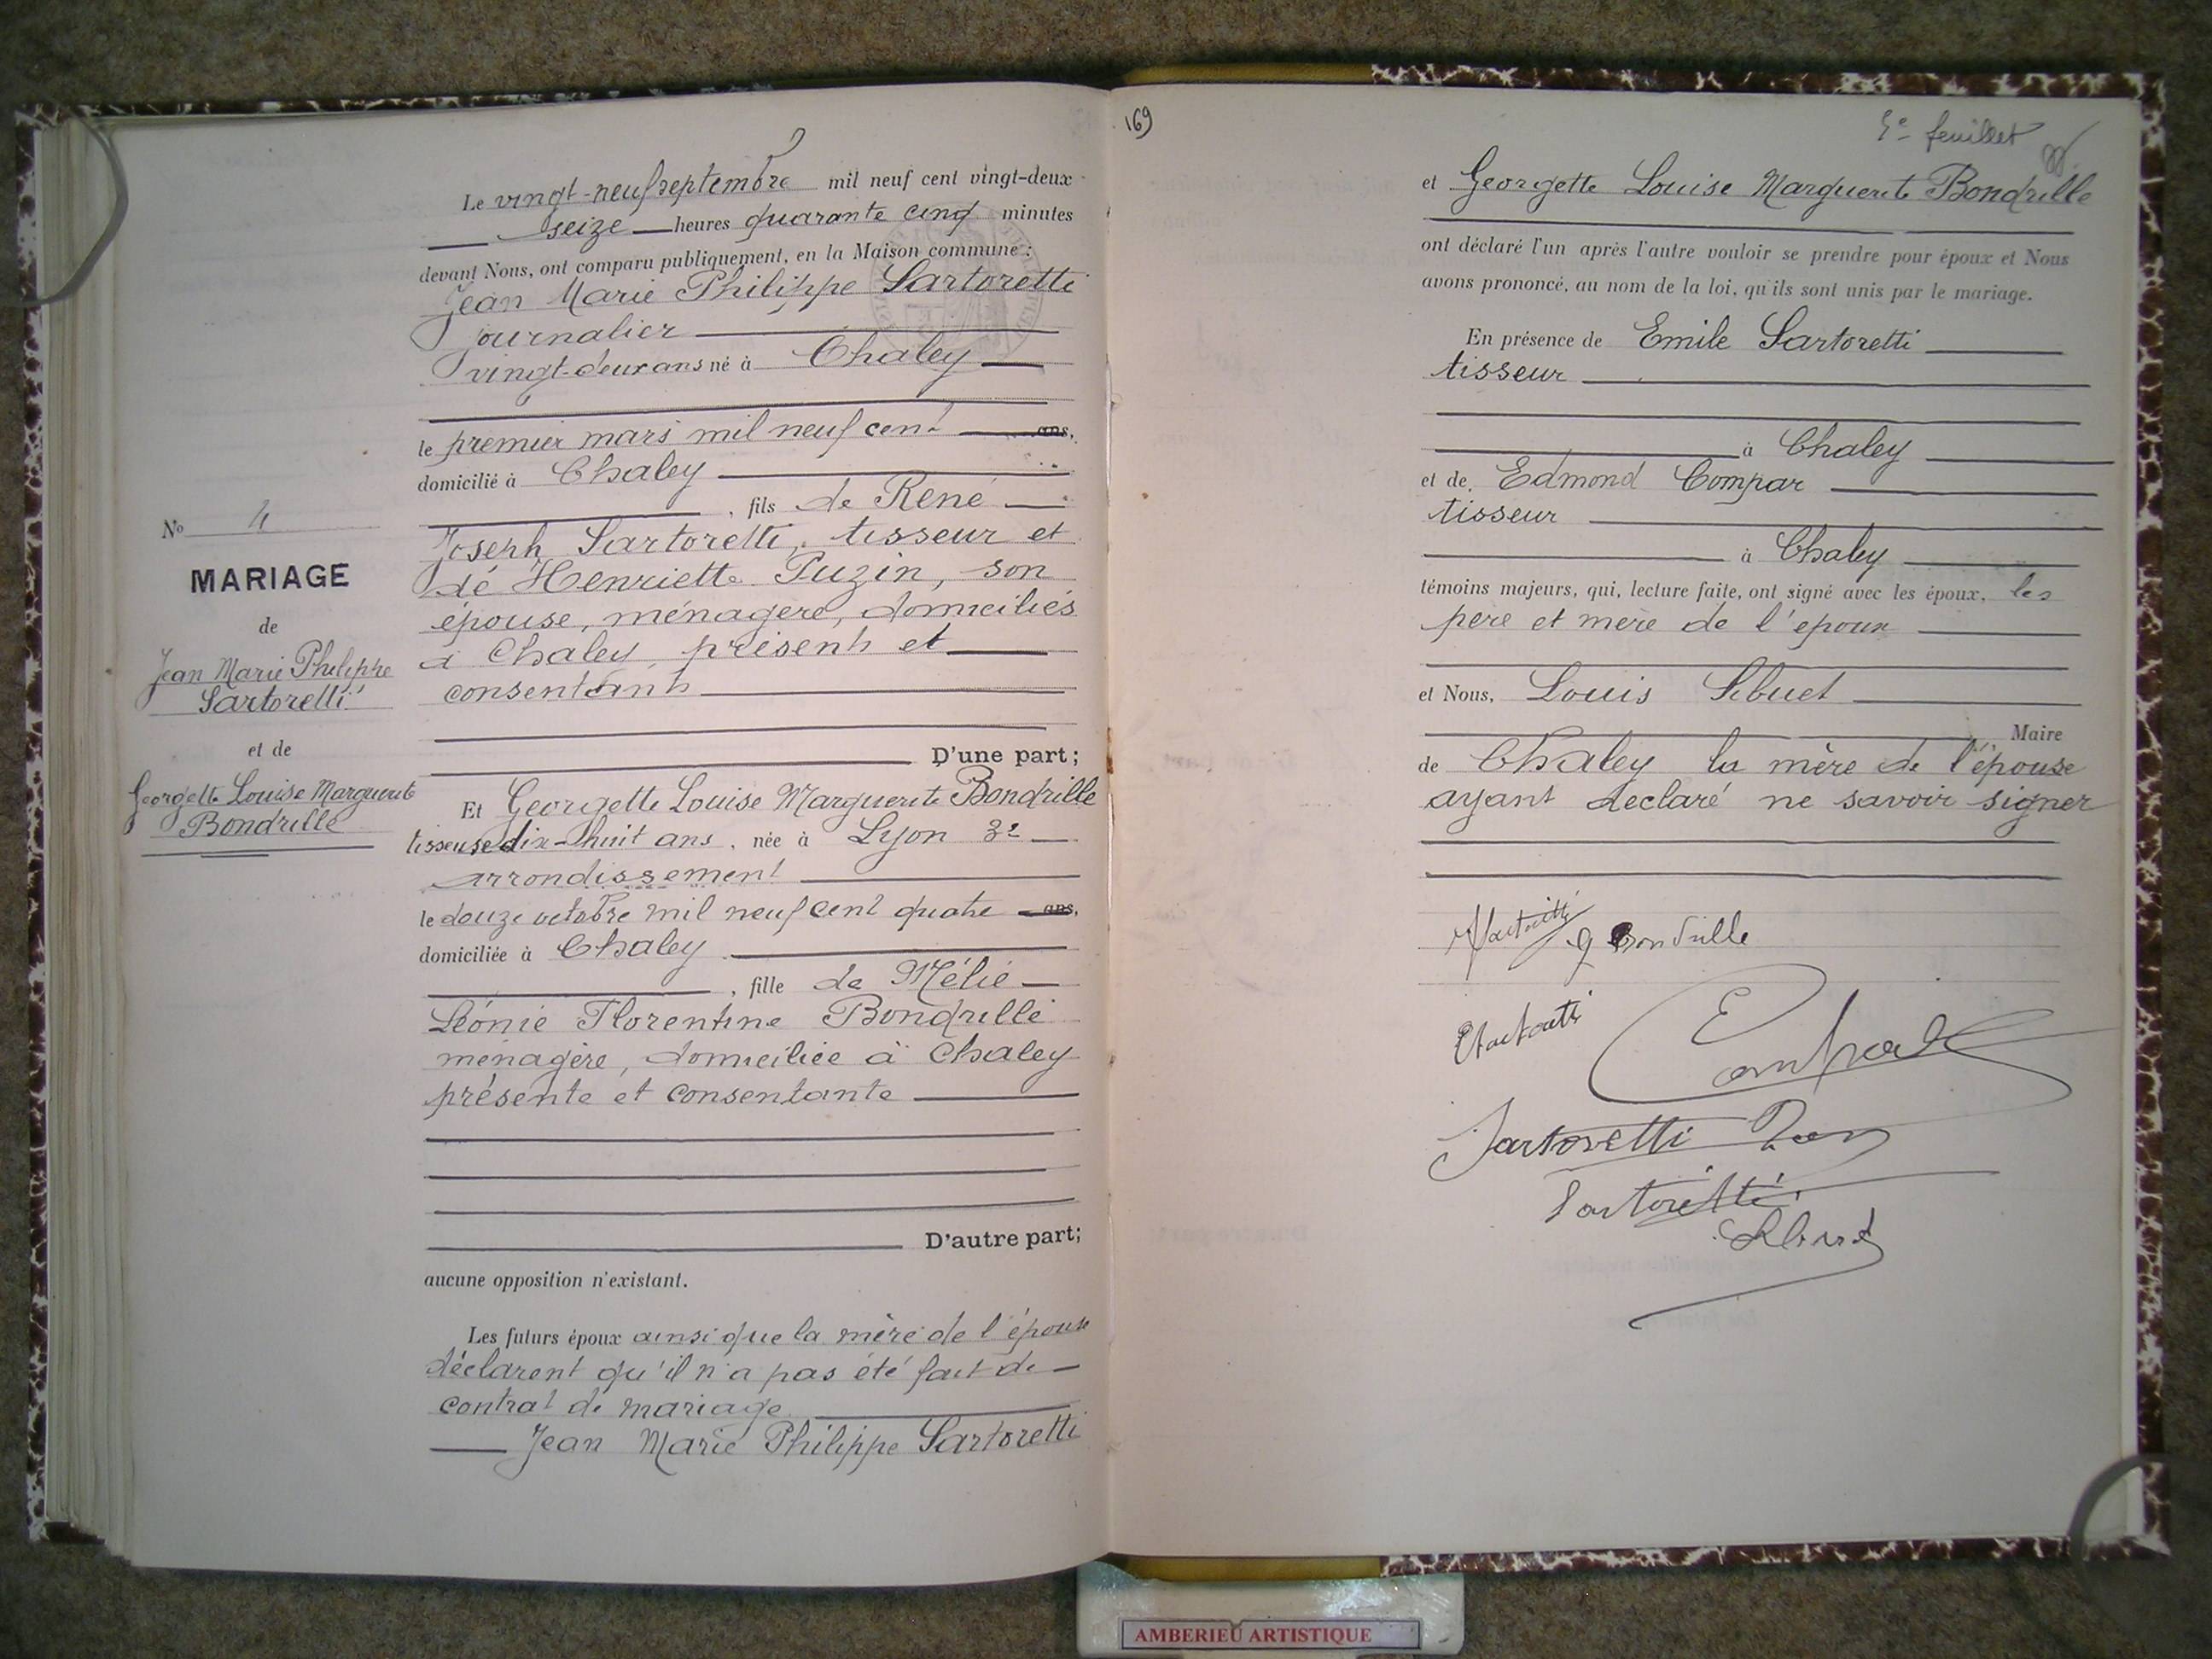 Le vingt-neuf septembre mil neuf cent vingt-deux
seize heures quarante cinq minutes
devant Nous, ont comparu publiquement, en la Maison commune :
Jean Marie Philippe Sartoretti
journalier
vingt-deux ans né à Chaley
le premier mars mil neuf cent ans,
domicilié à Chaley
, fils de René
Joseph Sartoretti, tisseur et
de Henriette Puzin, son
épouse, ménagère, domiciliés
à Chaley, présents et
consentants
D'une part ;
No 4
MARIAGE
de
Jean Marie Philippe
Sartoretti
et de
Georgette Louise Marguerite
Bondrille
Et Georgette Louise Marguerite Bondrille
tisseuse dix-huit ans, née à Lyon 3e
arrondissement
le douze octobre mil neuf cent quatre ans,
domiciliée à Chaley
, fille de Mélie
Léonie Florentine Bondrille
ménagère, domiciliée à Chaley
présente et consentante
D'autre part;
aucune opposition n'existant.
Les futurs époux ainsi que la mère de l'épouse
déclarent qu'il n'a pas été fait de
contrat de mariage
Jean Marie Philippe Sartoretti
169
feuillet
et Georgette Louise Marguerite Bondrille
ont déclaré l'un après l'autre vouloir se prendre pour époux et Nous
avons prononcé, au nom de la loi, qu'ils sont unis par le mariage.
En présence de Emile Sartoretti
tisseur
à Chaley
et de Edmond Compar
tisseur
à Chaley
témoins majeurs, qui, lecture faite, ont signé avec les époux, les
père et mère de l'époux
et Nous, Louis Sibuet
Maire
de Chaley la mère de l'épouse
ayant déclaré ne savoir signer
Sartoretti
G Bondrille
Sartoretti
Sartoretti
AMBERIEU ARTISTIQUE